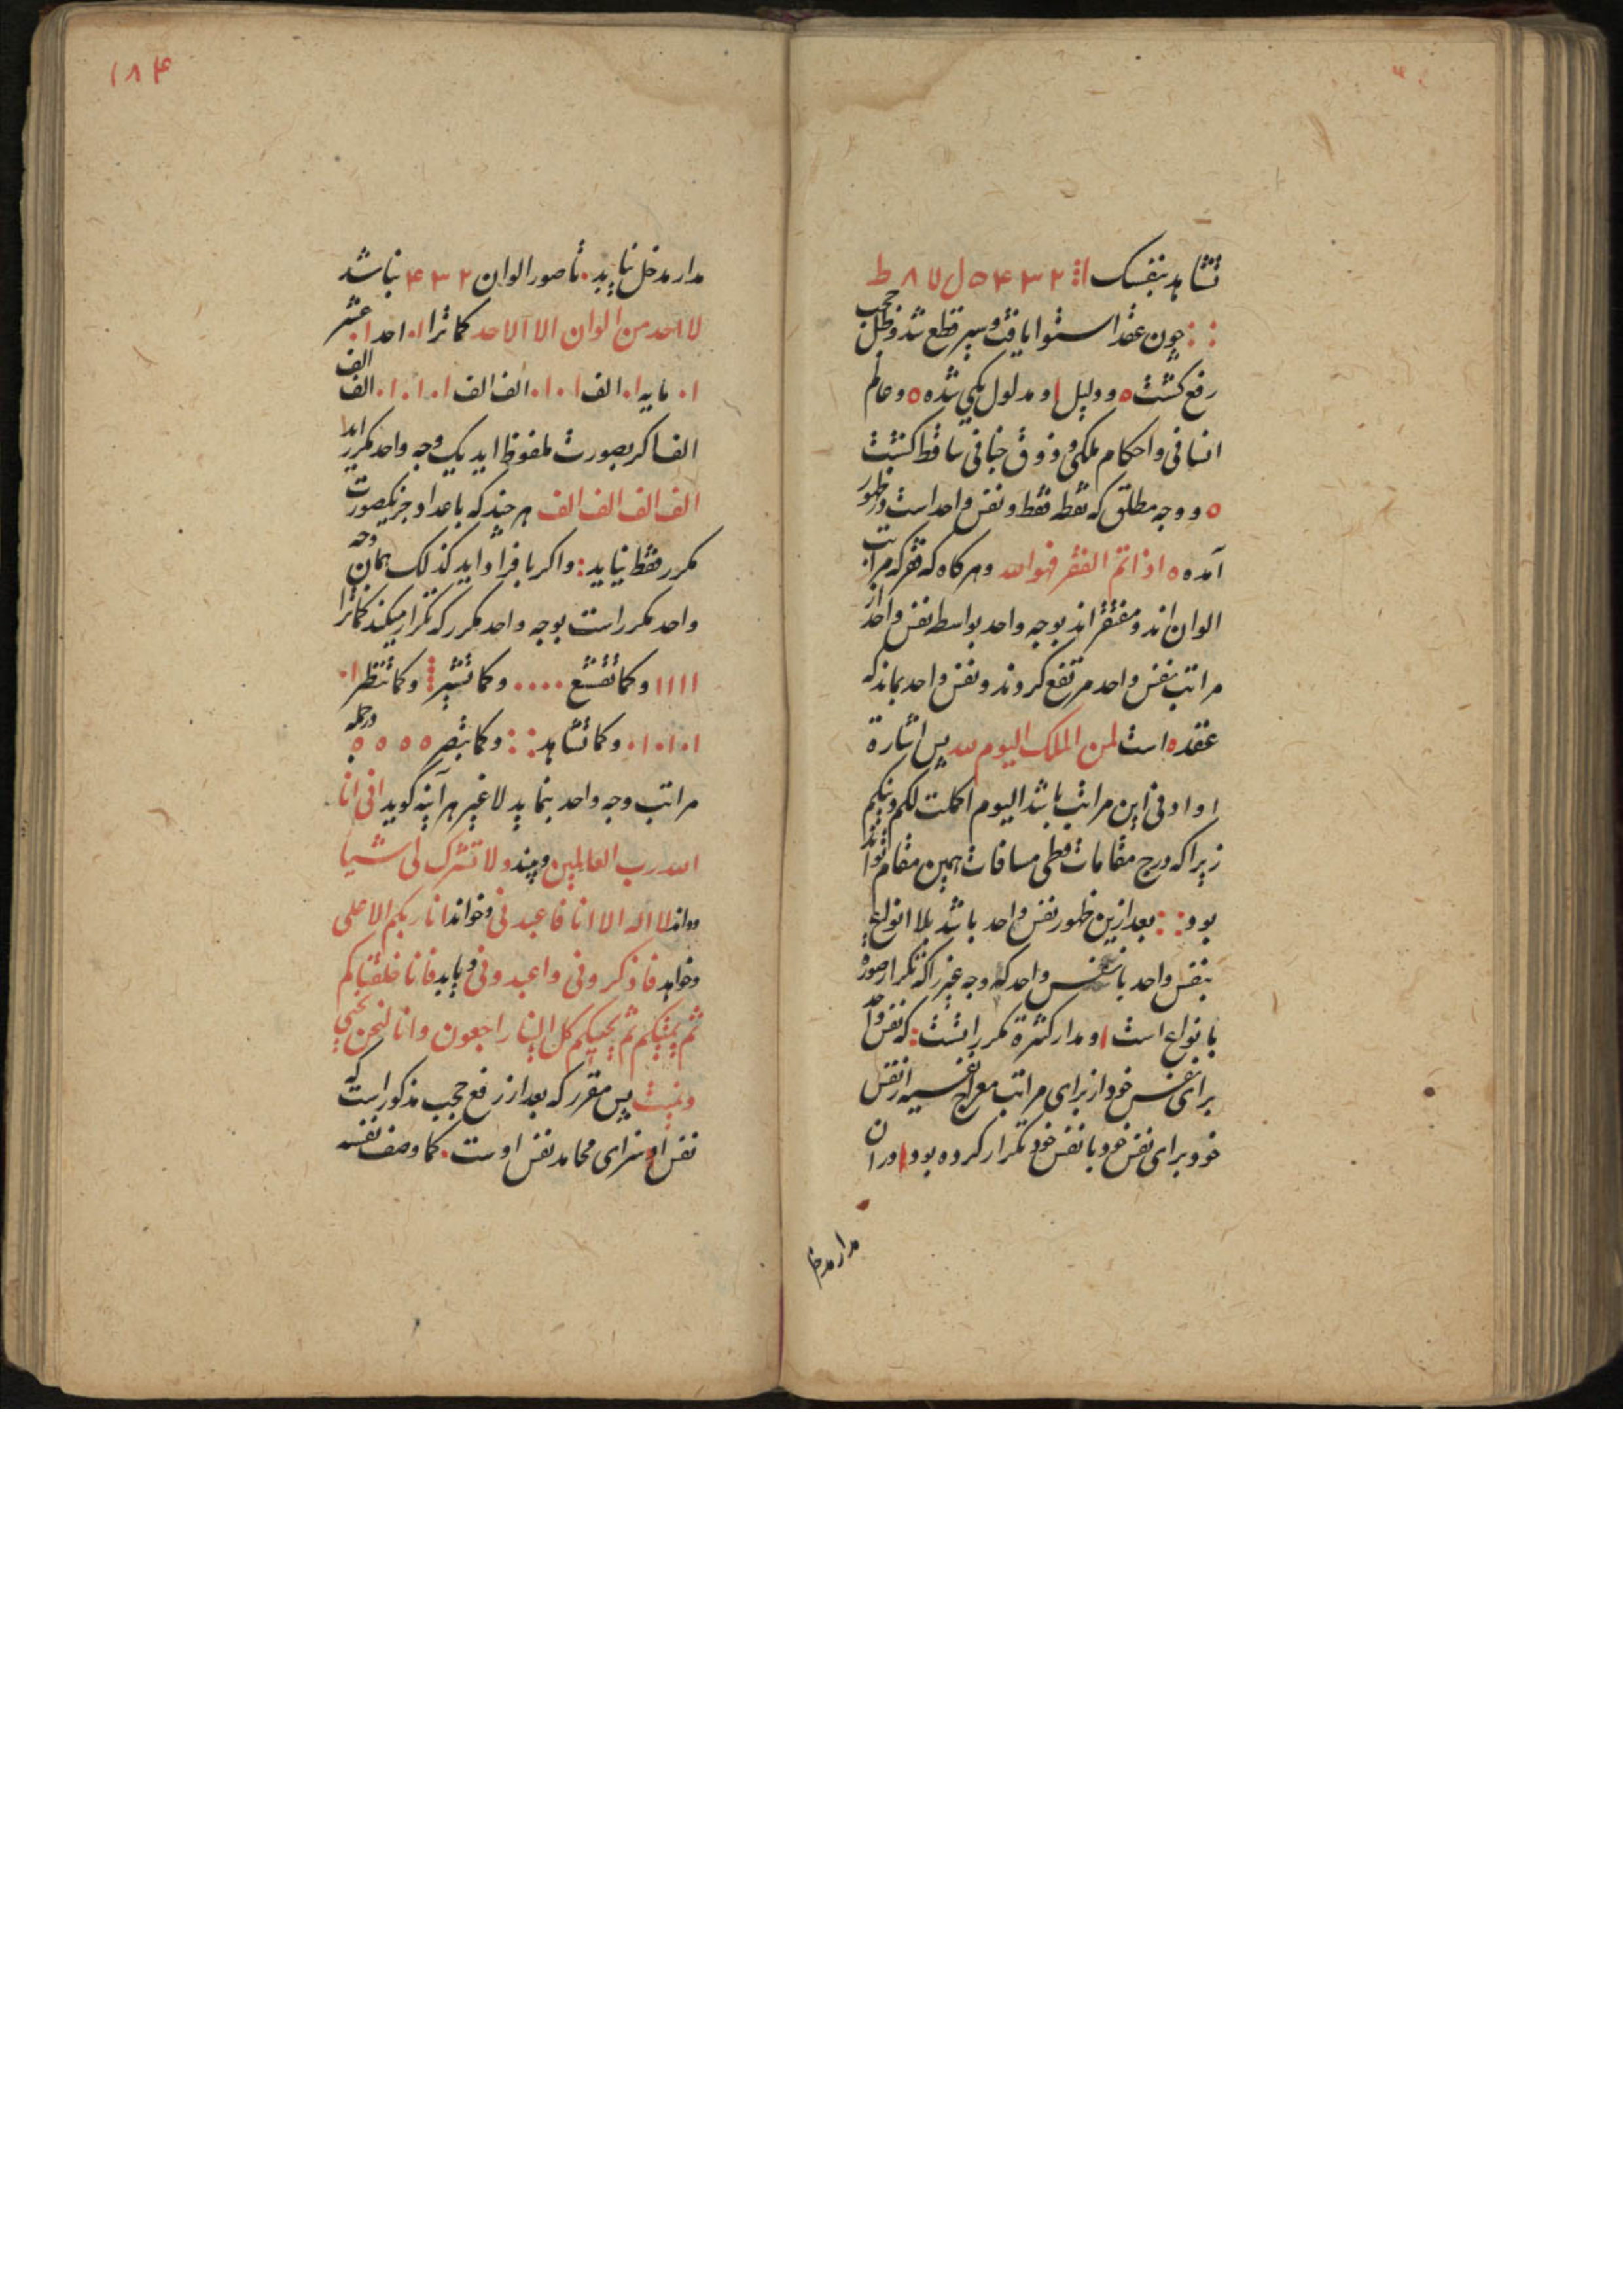 تشاهد بنفسک ا ۲ ۳ ۴ ۵ ل ۷ ۸ ط
چون عقد استوا یافت و سیر قطع شد و ظل حجب
رفع کشت ه و دلیل ا و مدلول یکی شده ه و عالم
انسانی و احکام ملکی و ذوق جنانی ساقط کشت
ه و وجه مطلق که نقطه فقط و نفس واحد است در ظهور
آمده ه اذا تم الفقر فهو الله و هر کاه که فقر که مراتب
الوان اند و مفتقر اند بوجه واحد بواسطه نفس واحد از
مراتب نفس واحد مرتفع کردند و نفس واحد بماند که
عقده ه است لمن الملک الیوم لله پس اشارة
او ادنی این مراتب باشد الیوم اکملت لکم دینکم
زیرا که درج مقامات و طی مسافات همین مقام تواند
بود : : بعد ازین ظهور نفس واحد باشد بلا انواع
بنفس واحد با نفس واحد که وجه غیر را که تکرار صورة
بانواع است ا و مدار کثرة مکرر انشت : که نفس واحد
برای نفس خود از برای مراتب معراج نفسیه از نفس
خود برای نفس خود با نفس خود تکرار کرده بود ا دران
مدار مدخل
۱۸۴
مدار مدخل نیابد . تا صور الوان ۲ ۳ ۴ نباشد
لا احد من الوان الا الاحد کما ترا ۱۰ احد ۱۰ عشر
۱۰ مایه ۱۰ الف ۱۰۱۰ الف الف ۱۰۱۰۱۰ الف الف
الف اکر بصورت ملفوظ اید یک وجه واحد مکرر اید
الف الف الف الف هر چند که باعداد جز یکصورت
مکرر فقط نیاید : و اکر بافراد اید کذلک همان وجه
واحد مکرر است بوجه واحد مکرر که تکرار میکند کما ترا
۱ ۱ ۱ ۱ و کما تقشع .... و کما تشیر و کما تنظر ۱۰
۱۰۱۰۱۰ و کما تشاهد : : و کما تبصر ه ه ه ه در جمله
مراتب وجه واحد بنماید لا غیر هر آینه کوید انی انا
الله رب العالمین و بیند و لا تشرک لی شیا
و داند لا اله الا انا فاعبدنی و خواند انا ربکم الاعلی
و خواهد فاذکرونی و اعبدونی و یابد فانا خلقناکم
ثم یمیتکم ثم یحییکم کل الینا راجعون و انا لنحن نحیی
و نمیت پس مقرر که بعد از رفع حجب مذکور است که
نفس او سزای محامد نفس اوست . کما وصف نفسه